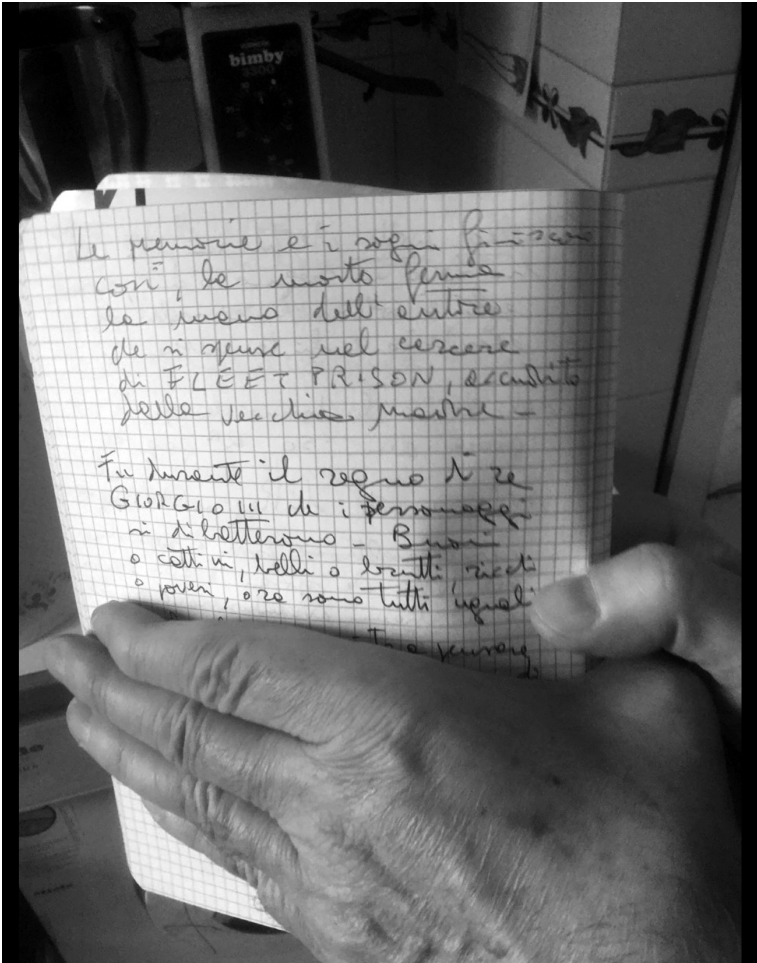 bimby
3300
Le memorie e i sogni finiscono
così, la morte ferma
la mano dell'autore
che si spense nel carcere
di FLEET PRISON, accudito
dalla vecchia madre –
Fu durante il regno di re
GIORGIO III che i personaggi
si dibatterono – Buoni
o cattivi, belli o brutti, ricchi
o poveri, ora sono tutti uguali